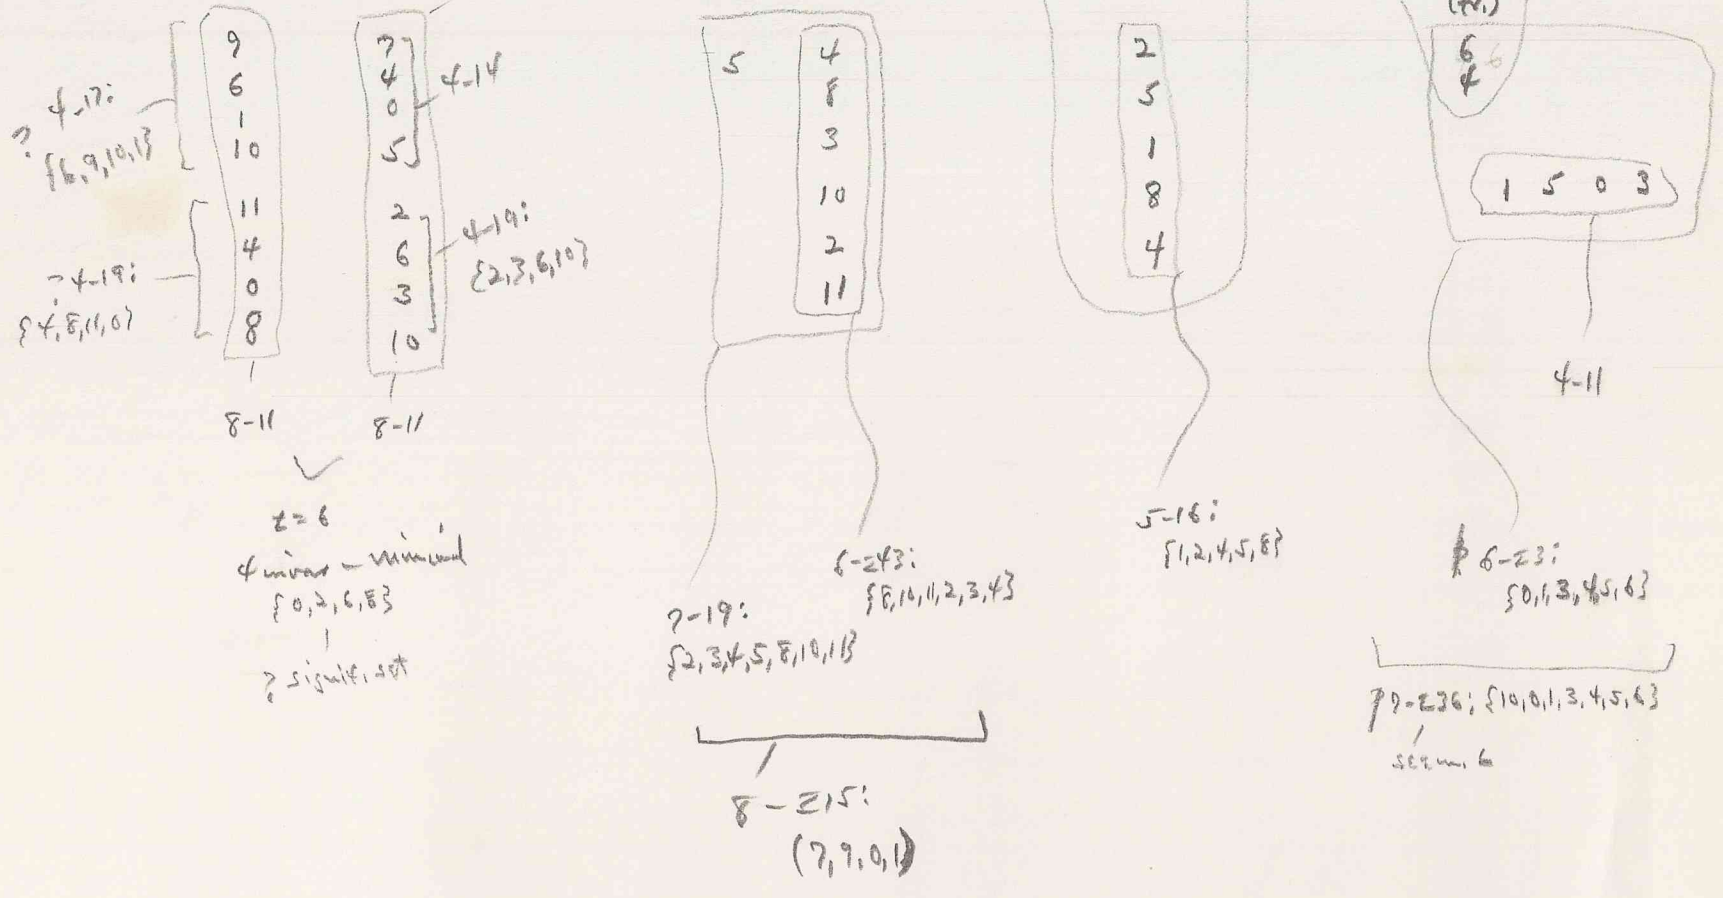 9
6
1
10
11
4
0
8
4-17:
?
{6,9,10,1}
? 4-19:
{4,8,11,0}
8-11
7
4
0
5
2
6
3
10
4-14
4-19:
{2,3,6,10}
8-11
t=6
4 invar - minimal
{0,2,6,8}
? signif. set
5
4
8
3
10
2
11
6-Z43:
{8,10,11,2,3,4}
7-19:
{2,3,4,5,8,10,11}
8-Z15:
(7,9,0,1)
2
5
1
8
4
5-16:
{1,2,4,5,8}
(tr.)
6 6
4
1 5 0 3
4-11
6-Z3:
{0,1,3,4,5,6}
7-Z36: {10,0,1,3,4,5,6}